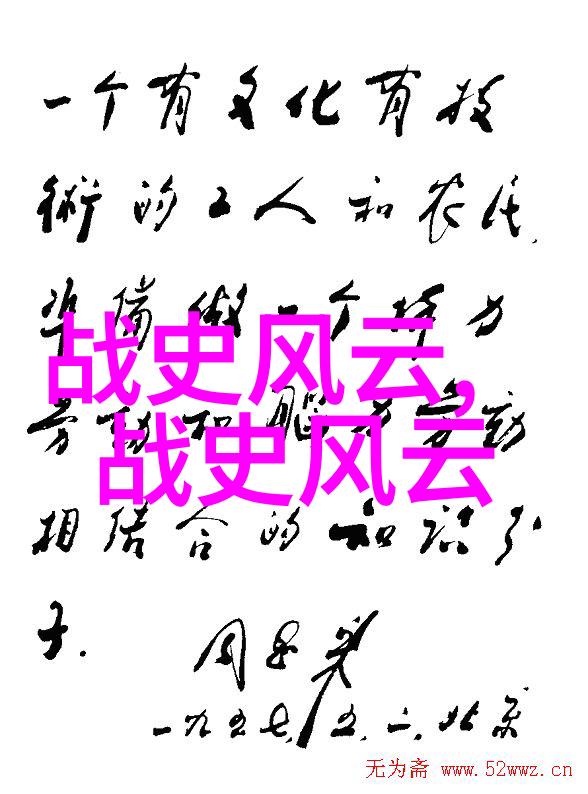 一个有文化有技
術的工人和农民,
準備做一个体力
战史风云,
劳动和腦力劳动
战史风云
相结合的知识分
子.
周恩来
一九五七,五.二.北京
无为斋 www.52wwz.cn